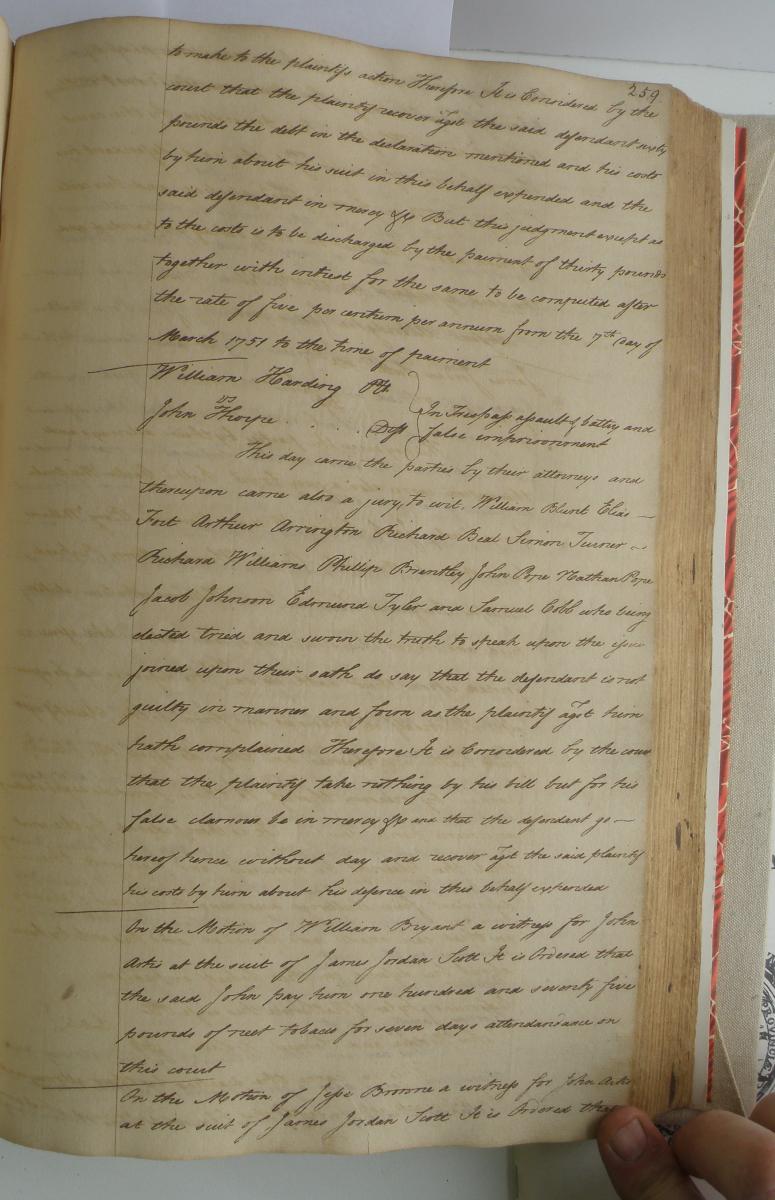 259
to make to the plaintifs action Therefore It is Considered by the
court that the plaintif recover agst the said defendant sixty
pounds the debt in the declaration mentioned and his costs
by him about his suit in this behalf expended and the
said defendant in mercy &c But this judgment except as
to the costs is to be discharged by the paiment of thirty pounds
together with intrest for the same to be computed after
the rate of five per centum per annum from the 7th day of
March 1751 to the time of paiment
William Harding Plt
vs
John Thorpe . . . . . Deft
In Trespass assault & battry and
false imprisonment
This day came the parties by their attorneys and
thereupon came also a jury, to wit, William Blunt Elias
Fort Arthur Arrington Richard Beal Simon Turner
Richard Williams Phillip Brantley John Pope Nathan Pope
Jacob Johnson Edmund Tyler and Samuel Cobb who being
elected tried and sworn the truth to speak upon the issue
joined upon their oath do say that the defendant is not
guilty in manner and form as the plaintif agst him
hath complained Therefore It is Considered by the court
that the plaintif take nothing by his bill but for his
false clamour be in mercy &c and that the defendant go
hereof hence without day and recover agst the said plaintif
his costs by him about his defence in this behalf expended
On the Motion of William Bryant a witness for John
Artis at the suit of James Jordan Scott It is Ordered that
the said John pay him one hundred and seventy five
pounds of neet tobacco for seven days attendance on
this court
On the Motion of Jesse Browne a witness for John Artis
at the suit of James Jordan Scott It is Ordered that